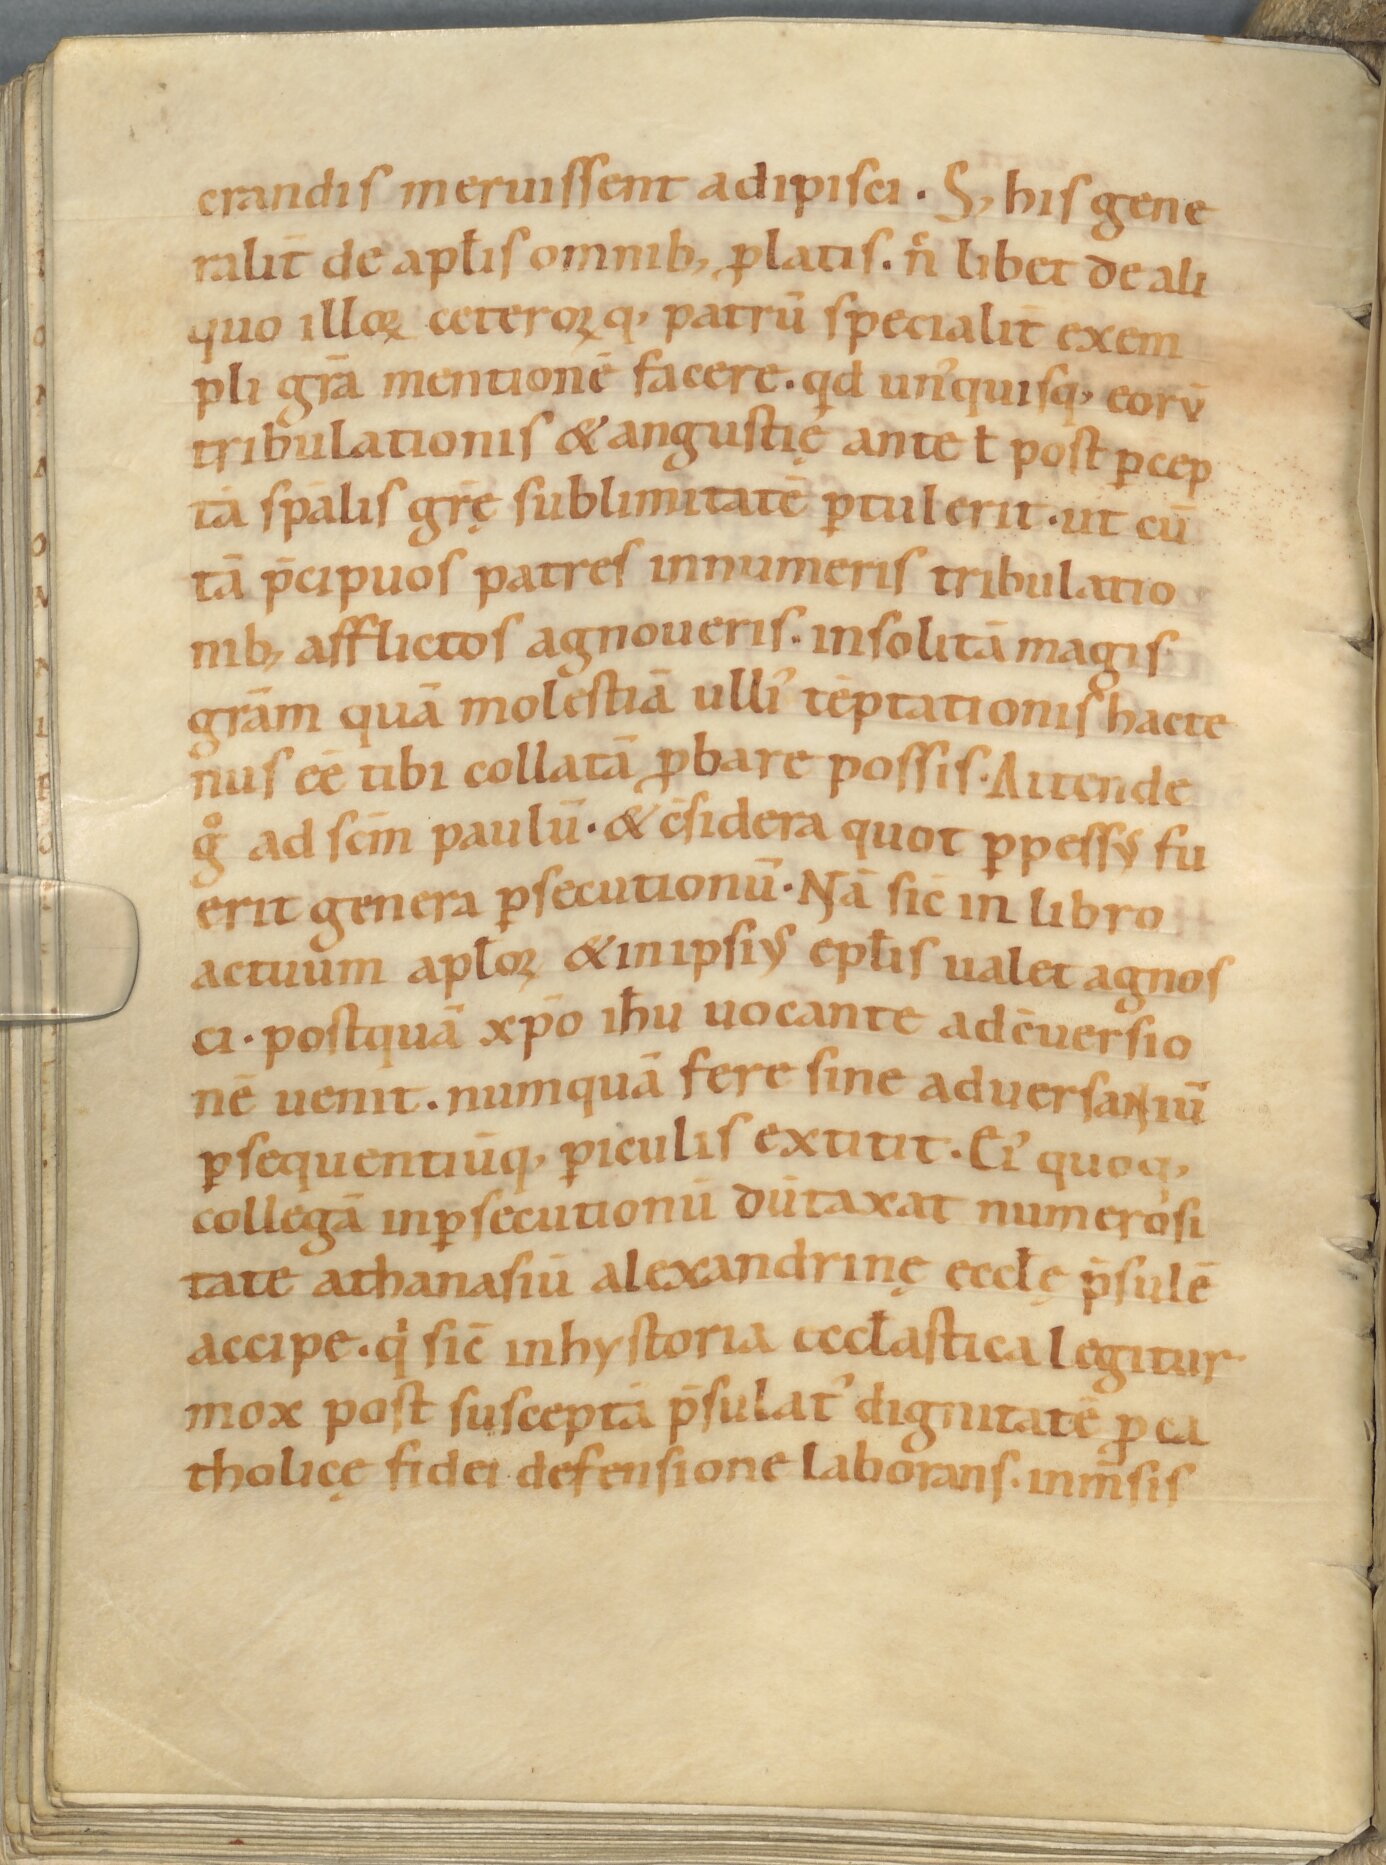 crandis meruissent adipisci. S; his gene
ralit̄ de apƚis omnib; ꝓlatis. n̊ libet de ali
quo illoꝝ ceteroꝝq; patrū specialit̄ exem
pli grā mentionē facere. qd unꝰquisq; eorū
tribulationis & angustię ante ƚ post ꝑcep
tā spālis grę̄ sublimitatē ꝑtulerit. ut cū
tā p̄cipuos patres innumeris tribulatio
nib; afflictos agnoueris. insolitā magis
grām quā molestiā ulliꝰ tēptationis hacte
nus eē tibi collatā ꝓbare possis. Attende
g̊ ad scm̄ paulū. & c̄sidera quot ꝑpessus fu
erit genera ꝑsecutionū. Nā sic̄ in libro
actuum apƚoꝝ & in ipsius epƚis ualet agnos
ci. postquā xp̄o ihu̅ uocante ad c̄uersio
nē uenit. numquā fere sine aduersantiū
ꝑsequentiūq; ꝑiculis extitit. Eiꝰ quoq;
collegā in ꝑsecutionū dūtaxat numerosi
tate athanasiū alexandrinę eccƚę p̄sulē
accipe. qͥ sic̄ in hystoria eccƚastica legitur
mox post susceptā p̄sulatꝰ dignitatē ꝓ ca
tholicę fidei defensione laborans. inm̄sis